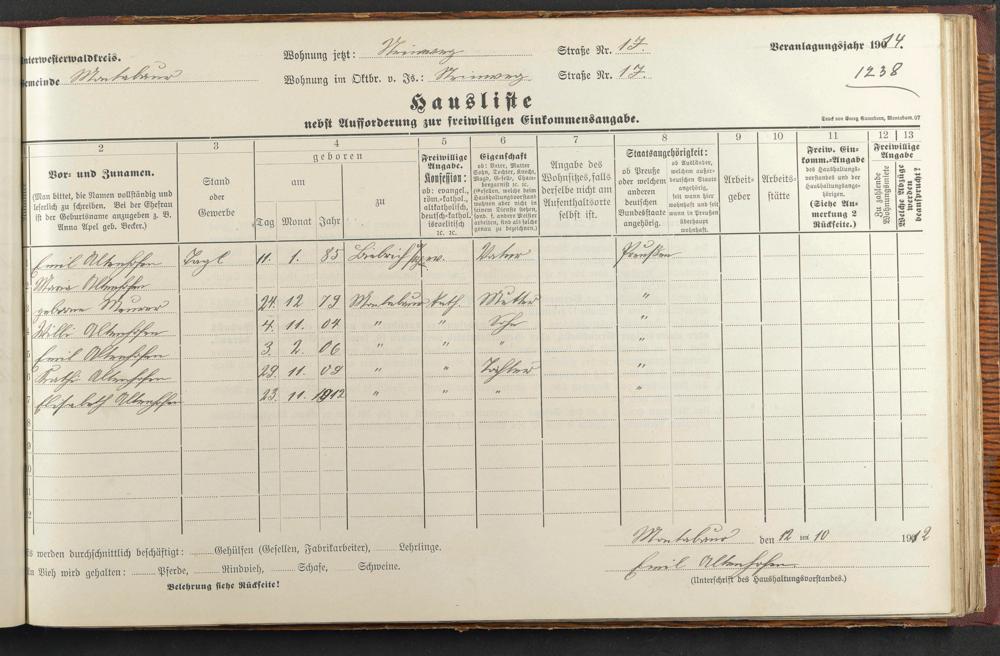 nterwesterwaldkreis.
emeinde Montabaur
Wohnung jetzt: Steinweg Straße Nr. 17.
Wohnung im Oktbr. v. Js.: Steinweg Straße Nr. 17.
Veranlagungsjahr 1914.
1238
Hausliste
nebst Aufforderung zur freiwilligen Einkommensangabe.
2
3
4
5
6
7
8
9
10
11
12
13
Vor- und Zunamen.
(Man bittet, die Namen vollständig und
leserlich zu schreiben. Bei der Ehefrau
ist der Geburtsname anzugeben z. B.
Anna Apel geb. Becker.)
Stand
oder
Gewerbe
geboren
am
zu
Tag Monat Jahr
Freiwillige
Angabe.
Konfession:
ob: evangel.,
röm.-kathol.,
altkatholisch,
deutsch-kathol.
israelitisch
ꝛc. ꝛc.
Eigenschaft
ob: Vater, Mutter
Sohn, Tochter, Knecht,
Angabe des
Wohnsitzes, falls
derselbe nicht am
Aufenthaltsorte
selbst ist.
Staatsangehörigkeit:
ob Preuße
oder welchem
anderen
deutschen
Bundesstaate
angehörig.
ob Ausländer,
welchem außer-
deutschen Staate
angehörig,
seit wann hier
wohnhaft und seit
wann in Preußen
überhaupt
wohnhaft.
Arbeit-
geber
Arbeits-
stätte
Freiw. Ein-
komm.-Angabe
des Haushaltungs-
vorstandes und der
Haushaltungsange-
hörigen.
(Siehe An-
merkung 2
Rückseite.)
Freiwillige
Angabe
Zu zahlende
Wohnungsmiete
Welche Abzüge
werden
beansprucht?
Emil Altenhofen 11. 1. 85 Biebrich ev. Vater Preußen
Maria Altenhofen
geborene Meurer 24. 12 79 Montabaur kath. Mutter "
Willi Altenhofen 4. 11. 04 " " Sohn "
Emil Altenhofen 3. 2. 06 " " " "
Käthi Altenhofen 29. 11. 09 " " Tochter "
Elisabeth Altenhofen 23. 11. 1912 " " " "
s werden durchschnittlich beschäftigt: Gehülfen (Gesellen, Fabrikarbeiter), Lehrlinge.
n Vieh wird gehalten: Pferde, Rindvieh, Schafe, Schweine.
Belehrung siehe Rückseite!
Montabaur den 12 ten 10 1912
Emil Altenhofen
(Unterschrift des Haushaltungsvorstandes.)